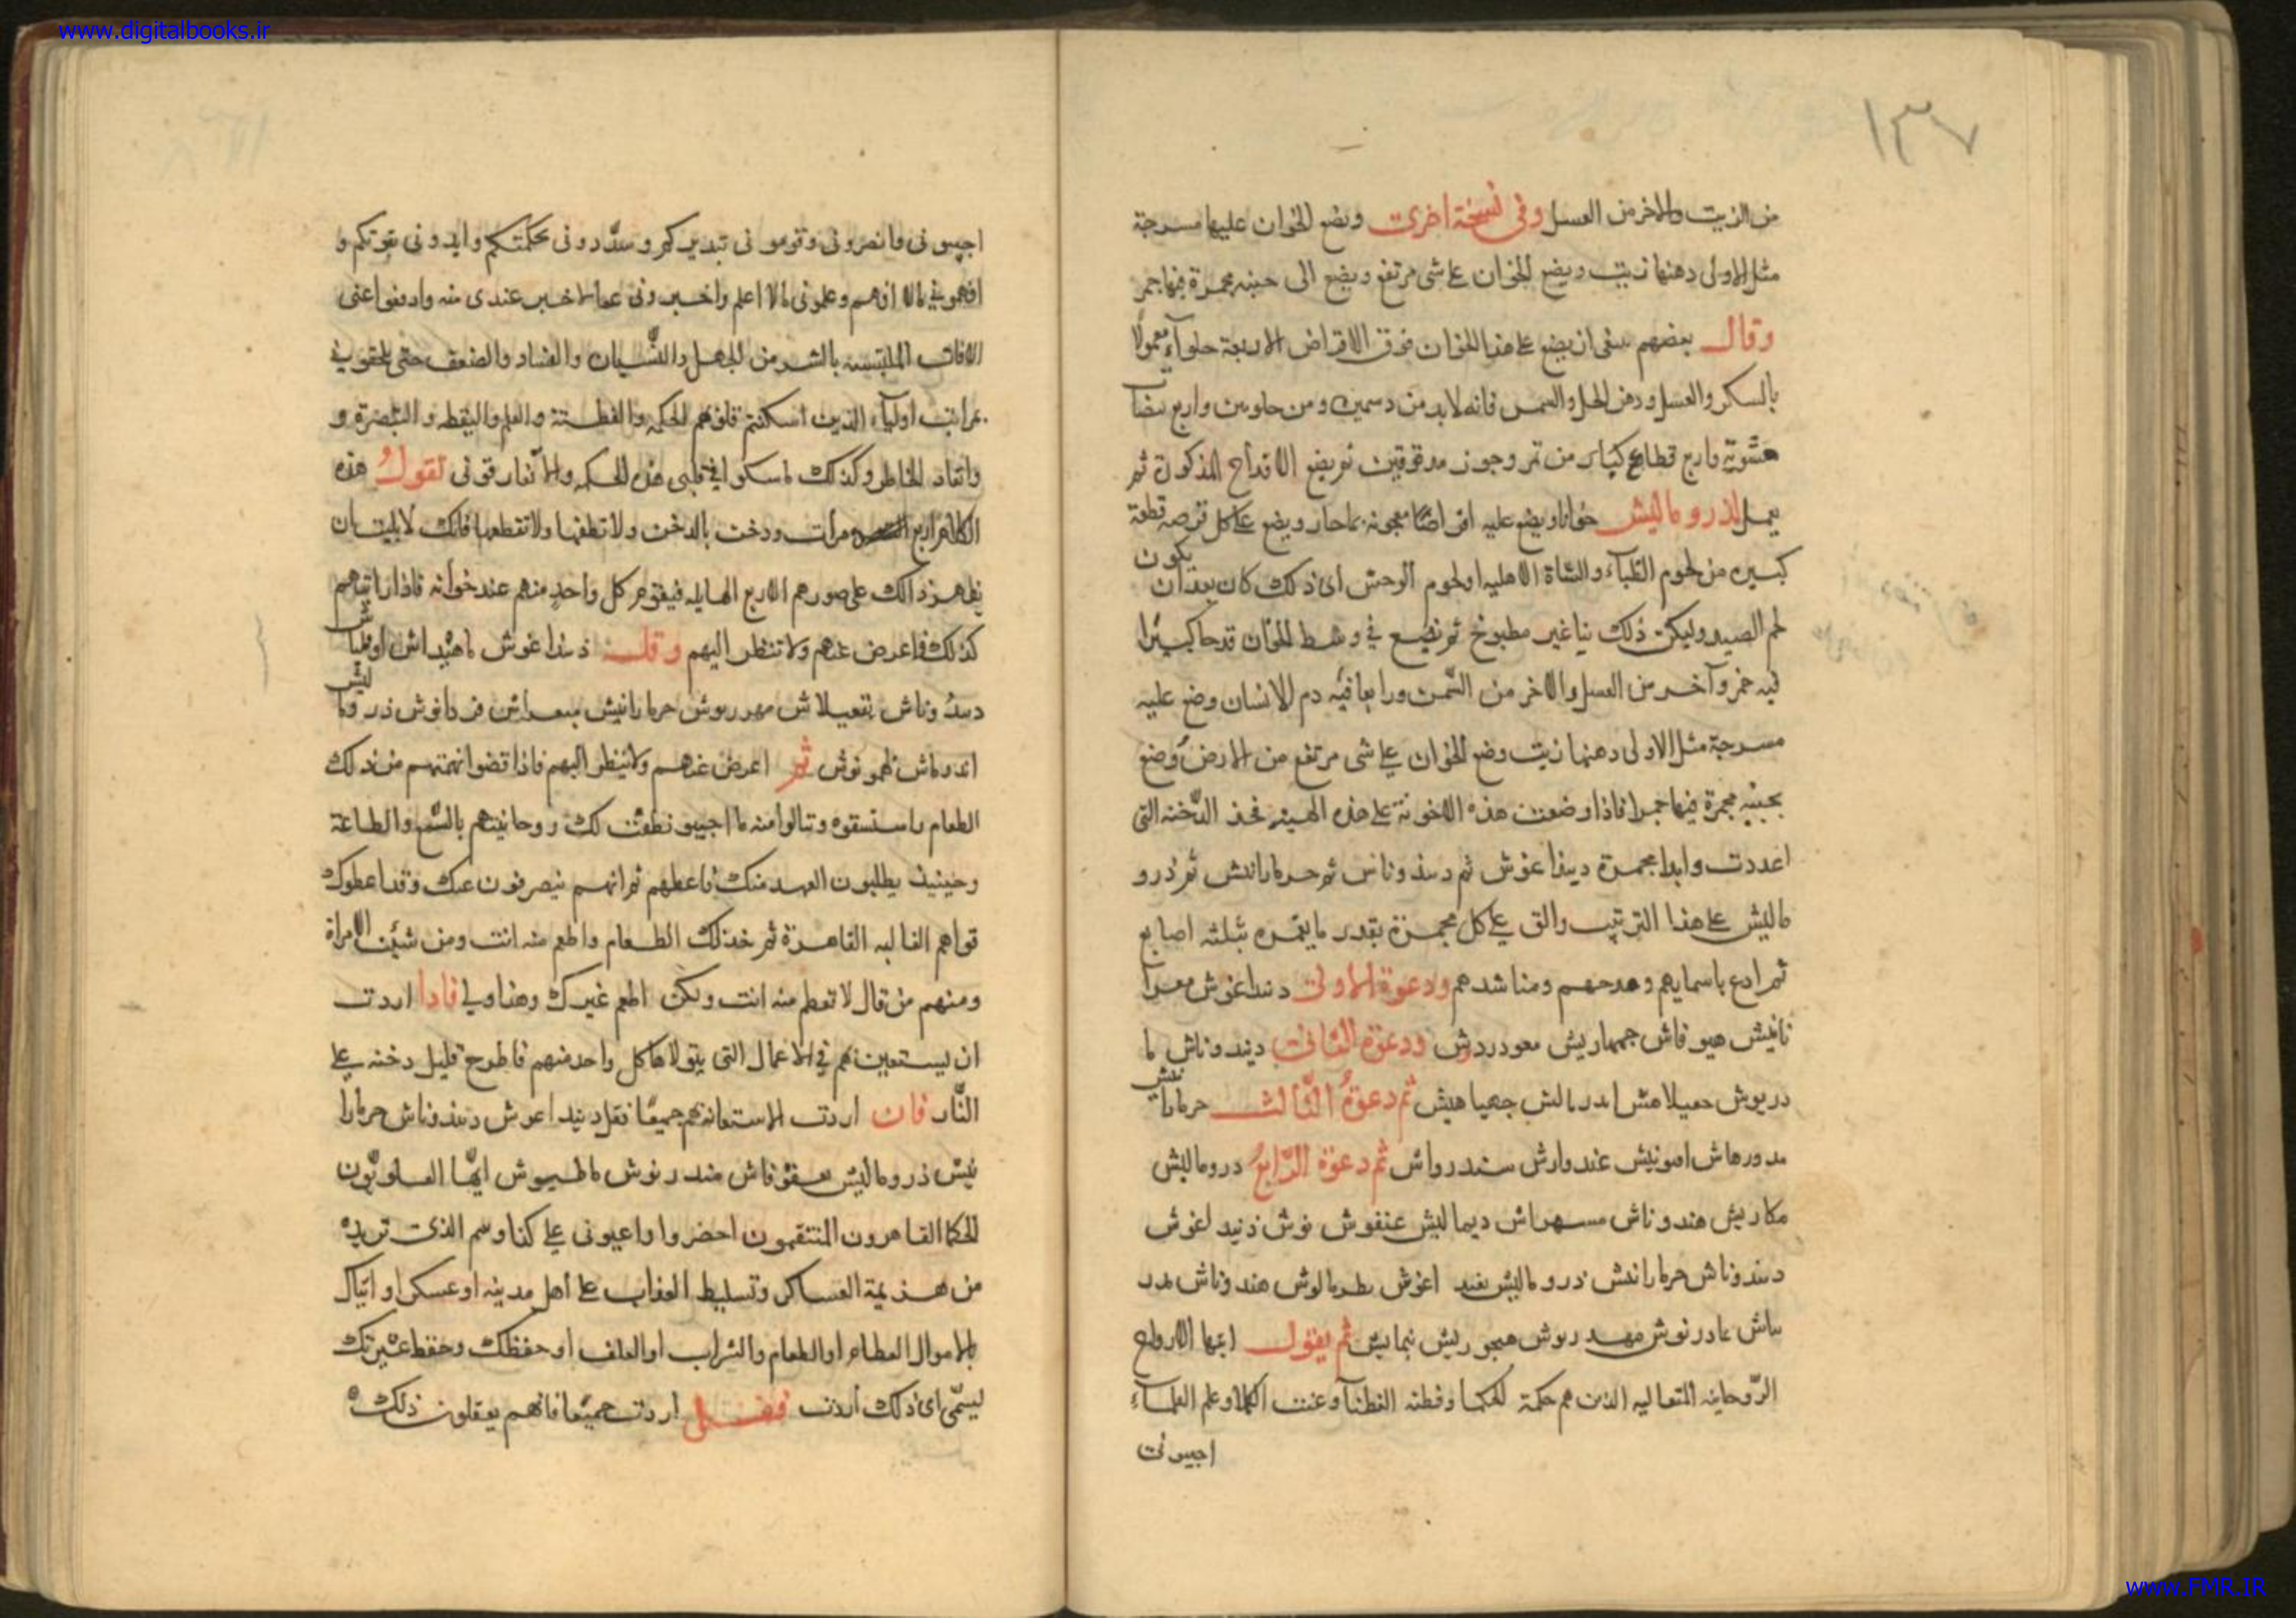 www.digitalbooks.ir
١٣٧
من الزيت والاخر من العسل وفى نسخة اخرى ويضع الخوان عليها مسرجة
مثل الاولى دهنها زيت ويضع الخوان على شى مرتفع ويضع الى جنبه مجمرة فيها جمر
وقال بعضهم ينبغى ان يضع على هذا الخوان فوق الاقراص الاربعة حلوآء معمولا
بالسكر والعسل ودهن الحل والسمن فانه لابد من دسمين ومن حلوين واربع بيضات
مشوية واربع قطاع كبار من تمر وجوز مدقوقين ثم يضع الاقداح المذكورة ثم
يعمل لذروماليش خوانا ويضع عليه اقراصا معجونة بماء حار ويضع على كل قرصه قطعة
كبيرة من لحوم الظبآء والشاة الاهليه او لحوم الوحش اى ذلك كان بعد ان يكون
لحم الصيد وليكن ذلك نيا غير مطبوخ ثم تضع فى وسط الخوان قدحا كبيرا
فيه خمر وآخر من العسل والاخر من السمن ورابعا فيه دم الانسان وضع عليه
مسرجة مثل الاولى دهنها زيت وضع الخوان على شى مرتفع من الارض وضع
بجنبه مجمرة فيها جمرا فاذا وضعت هذه الاخونة على هذه الهيئه فخذ الدخنه التى
اعددت وابدا بمجمرة ديذا غوش ثم دندوناس ثم حرمارانيش ثم ذرو
ماليش على هذا الترتيب والق على كل مجمرة بقدر ما يغمره بثلثه اصابع
ثم ادع باسمايهم ومدحهم ومناشدهم ودعوة الاولى دنداغوش معرا
نانيش هيوفاش جهماريش معودردش ودعوة الثانى ديندوناش ما
دريوش حعيلامش اندرمالش جهياهيش ثم دعوة الثالث حرمارانيش
مدورهاش امونيش عندوارش سندرواش ثم دعوة الرابع دروماليش
مكاريش هندوناش مسهراش ديماليش عنقوش نوش ذنيد اغوش
دندوناش حرمارانيش ذروماليش اغوش طرمالوش هندوناش مدر
ماش عادرنوش مهدريوش هيجوريش نيماييش ثم يقول ايتها الارواح
الروحانيه المتعاليه الذين هم حكمة الحكما وفطنه الفطنآ وعلم العلمآء
اجيبونى
اجيبونى وانصرونى وقومونى تبديركم وسددونى بحكمتكم وايدونى بقوتكم و
افهمونى مالا افهم وعلمونى مالا اعلم واخبرونى عمالا خبر عندى منه وادفعوا عنى
الافات الملتبسه بالشر من الجهل والنسيان والفساد والضعف حتى تلحقونى
بمراتب اوليآء الذين اسكنتم قلوبهم الحكمه والفطنة والعلم واليقظه والتبصرة و
واتقاد الخاطر وكذلك فاسكنوا فى قلبى هذه الحكمه ولا تفارقونى تقول هذه
الكلام اربع مرات ودخن بالدخن ولا تطفها ولا تقطعها فانك لا يلبث ان
يظهر ذالك على صورهم الاربع الهايله فيقوم كل واحد منهم عند خوانه فاذا رايتهم
كذلك فاعرض عنهم ولا تنظر اليهم وقل ذنداغوش ماهيداش
دندوناش تفعيلاش مهدريوش حرمارانيش ذروماليش
اندرماش ثم اعرض عنهم ولا تنظر اليهم فاذا قضوا نهمتهم من ذلك
الطعام واستنسقوه ونالوا منه ما احبوا نطقت لك روحانيتهم بالسمع والطاعة
وحينيذ يطلبون العهد منك فاعطهم ثم انهم ينصرفون عنك وقد اعطوك
قواهم الغالبه القاهرة ثم خذ ذلك الطعام واطعم منه انت ومن شئت الا امراة
ومنهم من قال لا تطعم منه انت ولكن اطعم غيرك وهذا ولى فاذا اردت
ان يستعين بهم فى الاعمال التى يتولاها كل واحد منهم فاطرح قليل دخنه على
النار فان اردت الاستعانه بهم جميعا فقل دنيد اغوش دندوناش حرمارا
نيش ذروماليش مندرنوش ماطيوش ايها العلويون
الحكما القاهرون المنتقمون احضروا واعيونى على كذا وسم الذى تريده
من هزيمة العساكر وتسليط العذاب على اهل مدينه او عسكر او اتياك
بالاموال العظام او الطعام والشراب او العلف او حفظك وحفظ عترتك
ليسمى اى ذلك اردت فصل اردت جميعا فانهم يفعلون ذلك
www.FMR.IR